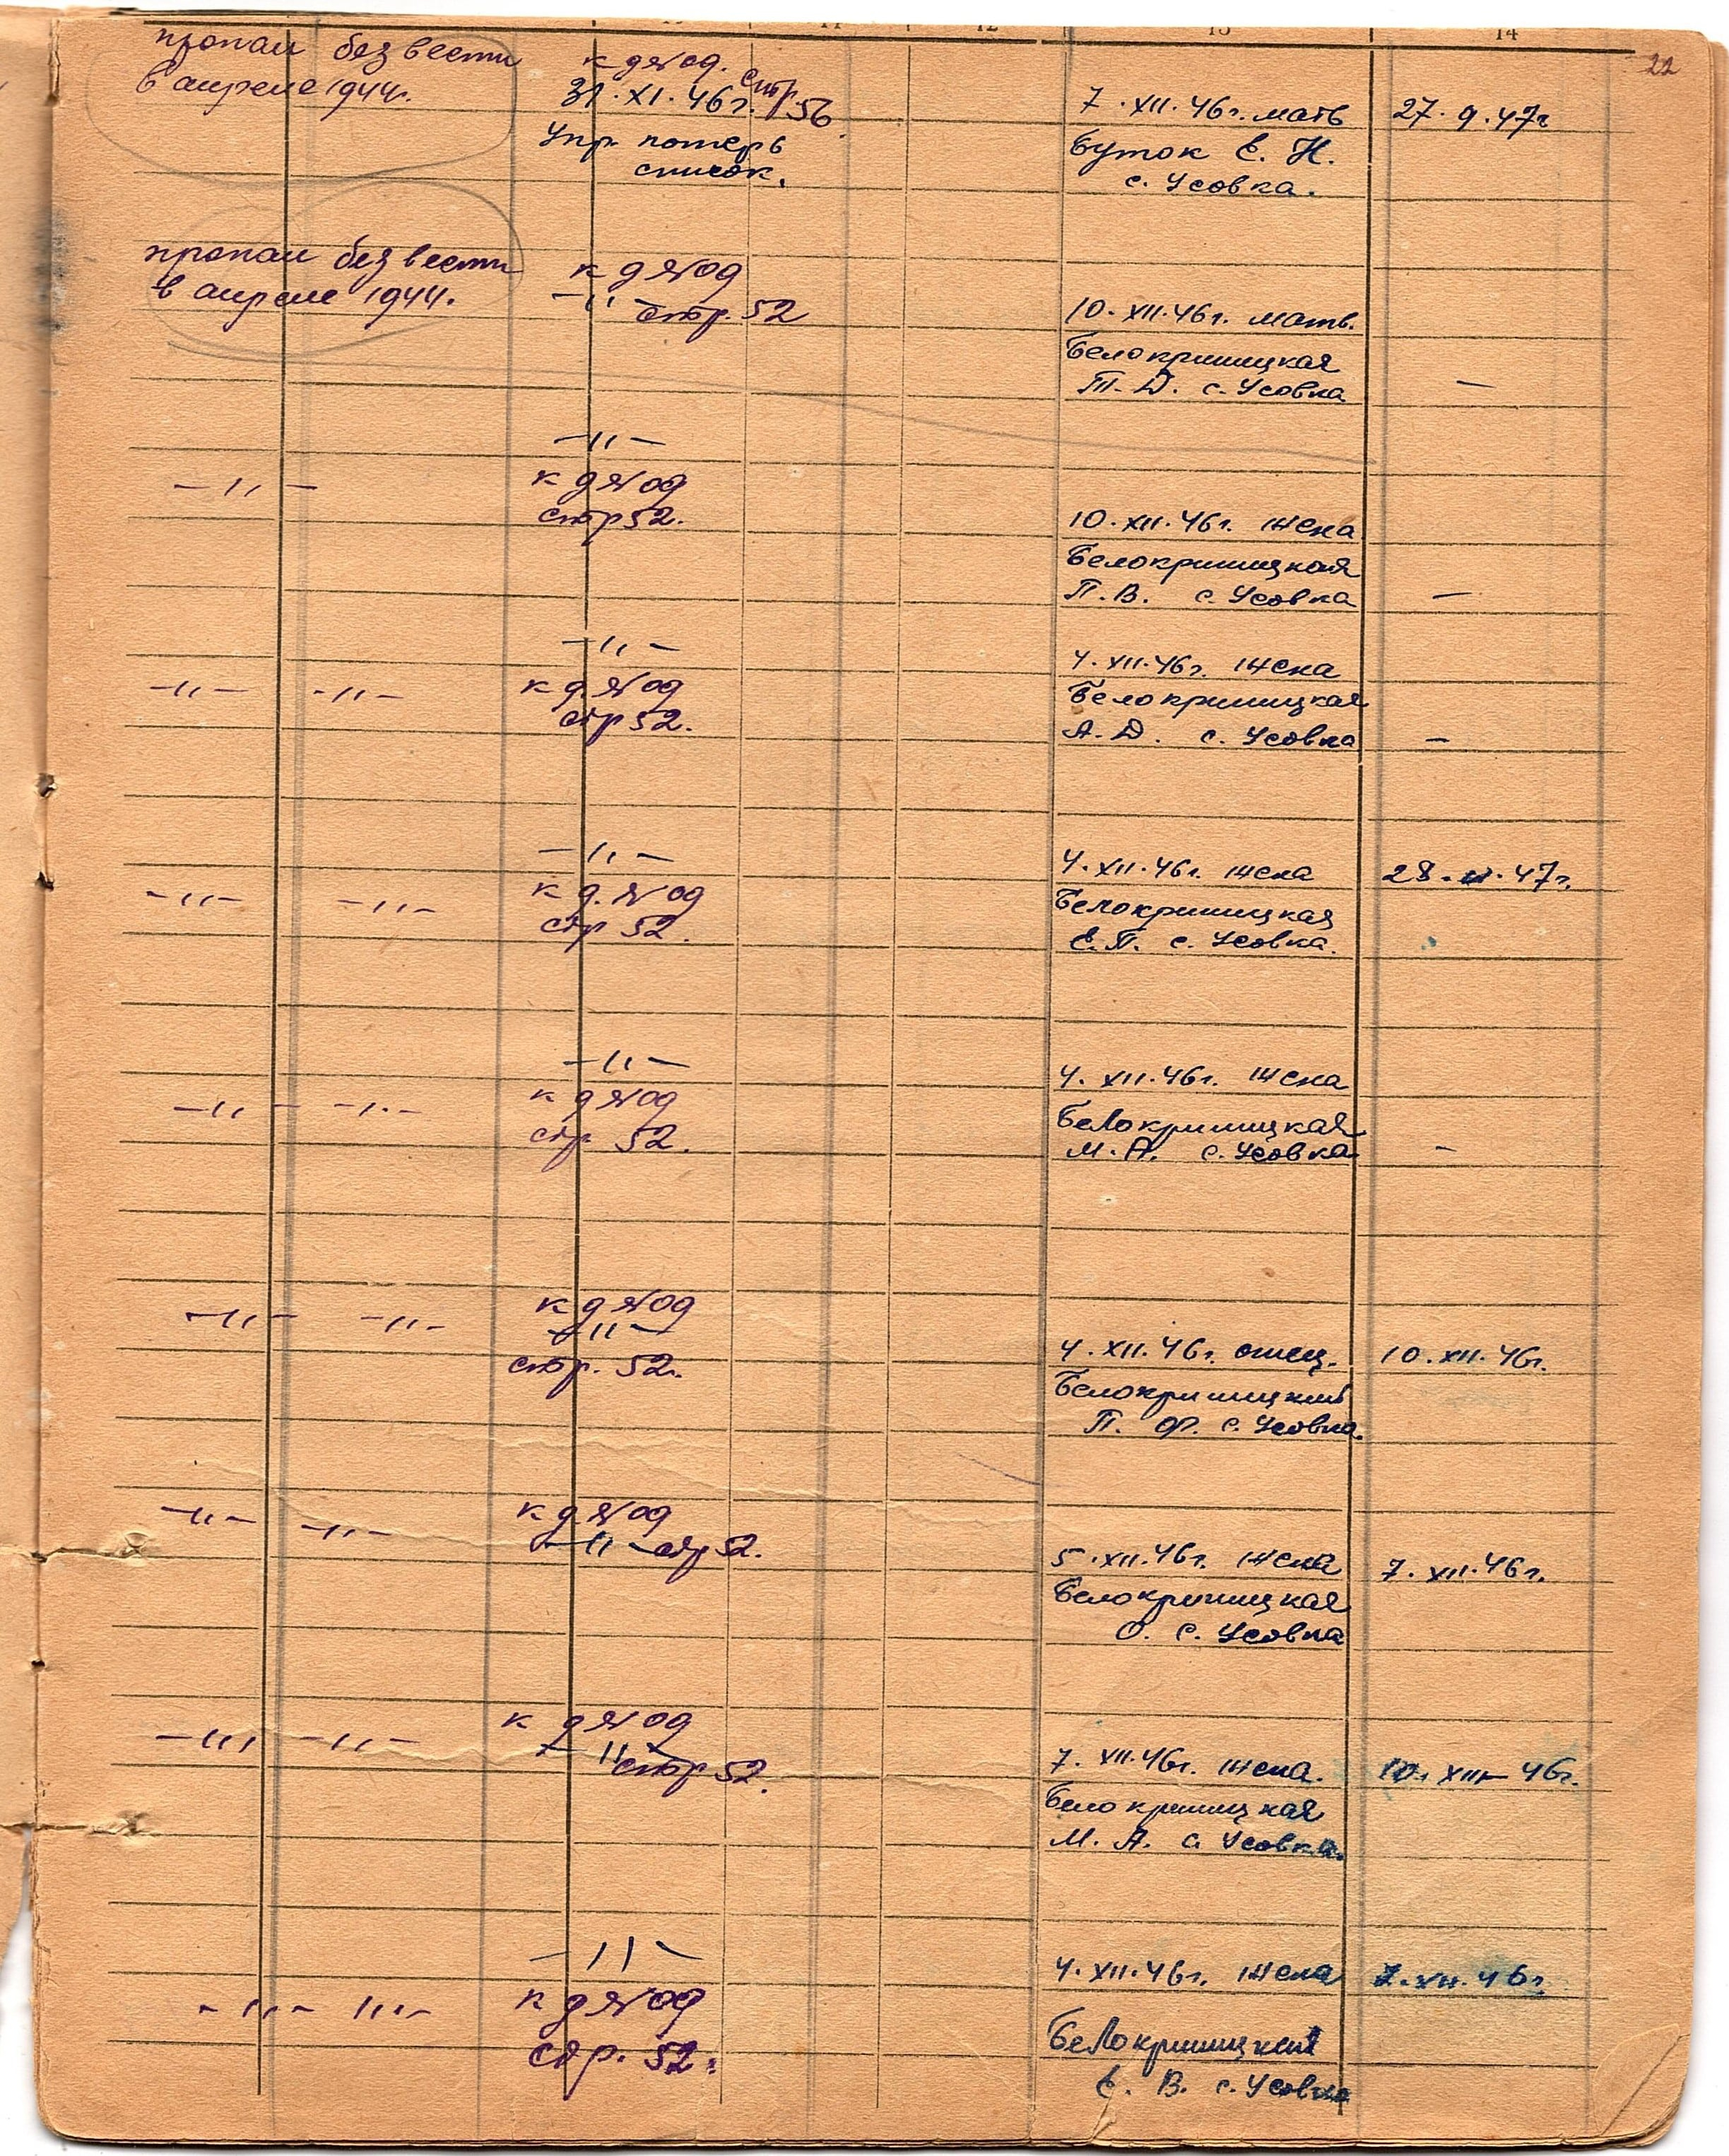 12 13 14
22
пропал без вести
в апреле 1944г.
к д №09. стр. 56.
31.XI.46г.
Упр. потерь
список.
7.XII.46г. мать
Буток Е. Н.
с. Усовка.
27.9.47г
пропал без вести
в апреле 1944.
к д №09
–"– стр. 52
10.XII.46г. мать.
Белокриницкая
Т. Д. с. Усовка
–
–"–
–"–
к д №09
стр 52.
10.XII.46г. жена
Белокриницкая
П. В. с. Усовка
–
–"– –"–
–"–
к д. №09
стр 52.
4.XII.46г. жена
Белокриницкая
А. Д. с. Усовка
–
–"– –"–
–"–
к д. №09
стр 52.
4.XII.46г. жена
Белокриницкая
Е. П. с. Усовка.
28. 47г.
–"– –"–
–"–
к д №09
стр 52.
4.XII.46г. жена
Белокриницкая
М. А. с. Усовка
–
–"– –"–
к д №09
–"–
стр. 52.
4.XII.46г. отец.
Белокриницкий
П. Ф. с. Усовка.
10.XII.46г.
–"– –"–
к д №09
–"– стр 52.
5.XII.46г. жена
Белокриницкая
О. с. Усовка
7.XII.46г.
–"– –"–
к д №09
–"– стр 52.
7.XII.46г. жена.
Белокриницкая
М. А. с Усовка.
10.XII–46г.
–"– –"–
–"–
к д №09
стр. 52.
4.XII.46г. жена
Белокриницкая
Е. В. с. Усовка
7.XII.46г.